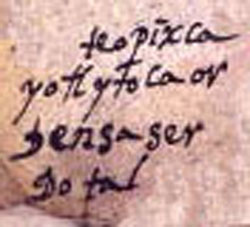 teopixca
yotl ytoca or
den sacer
Dotal